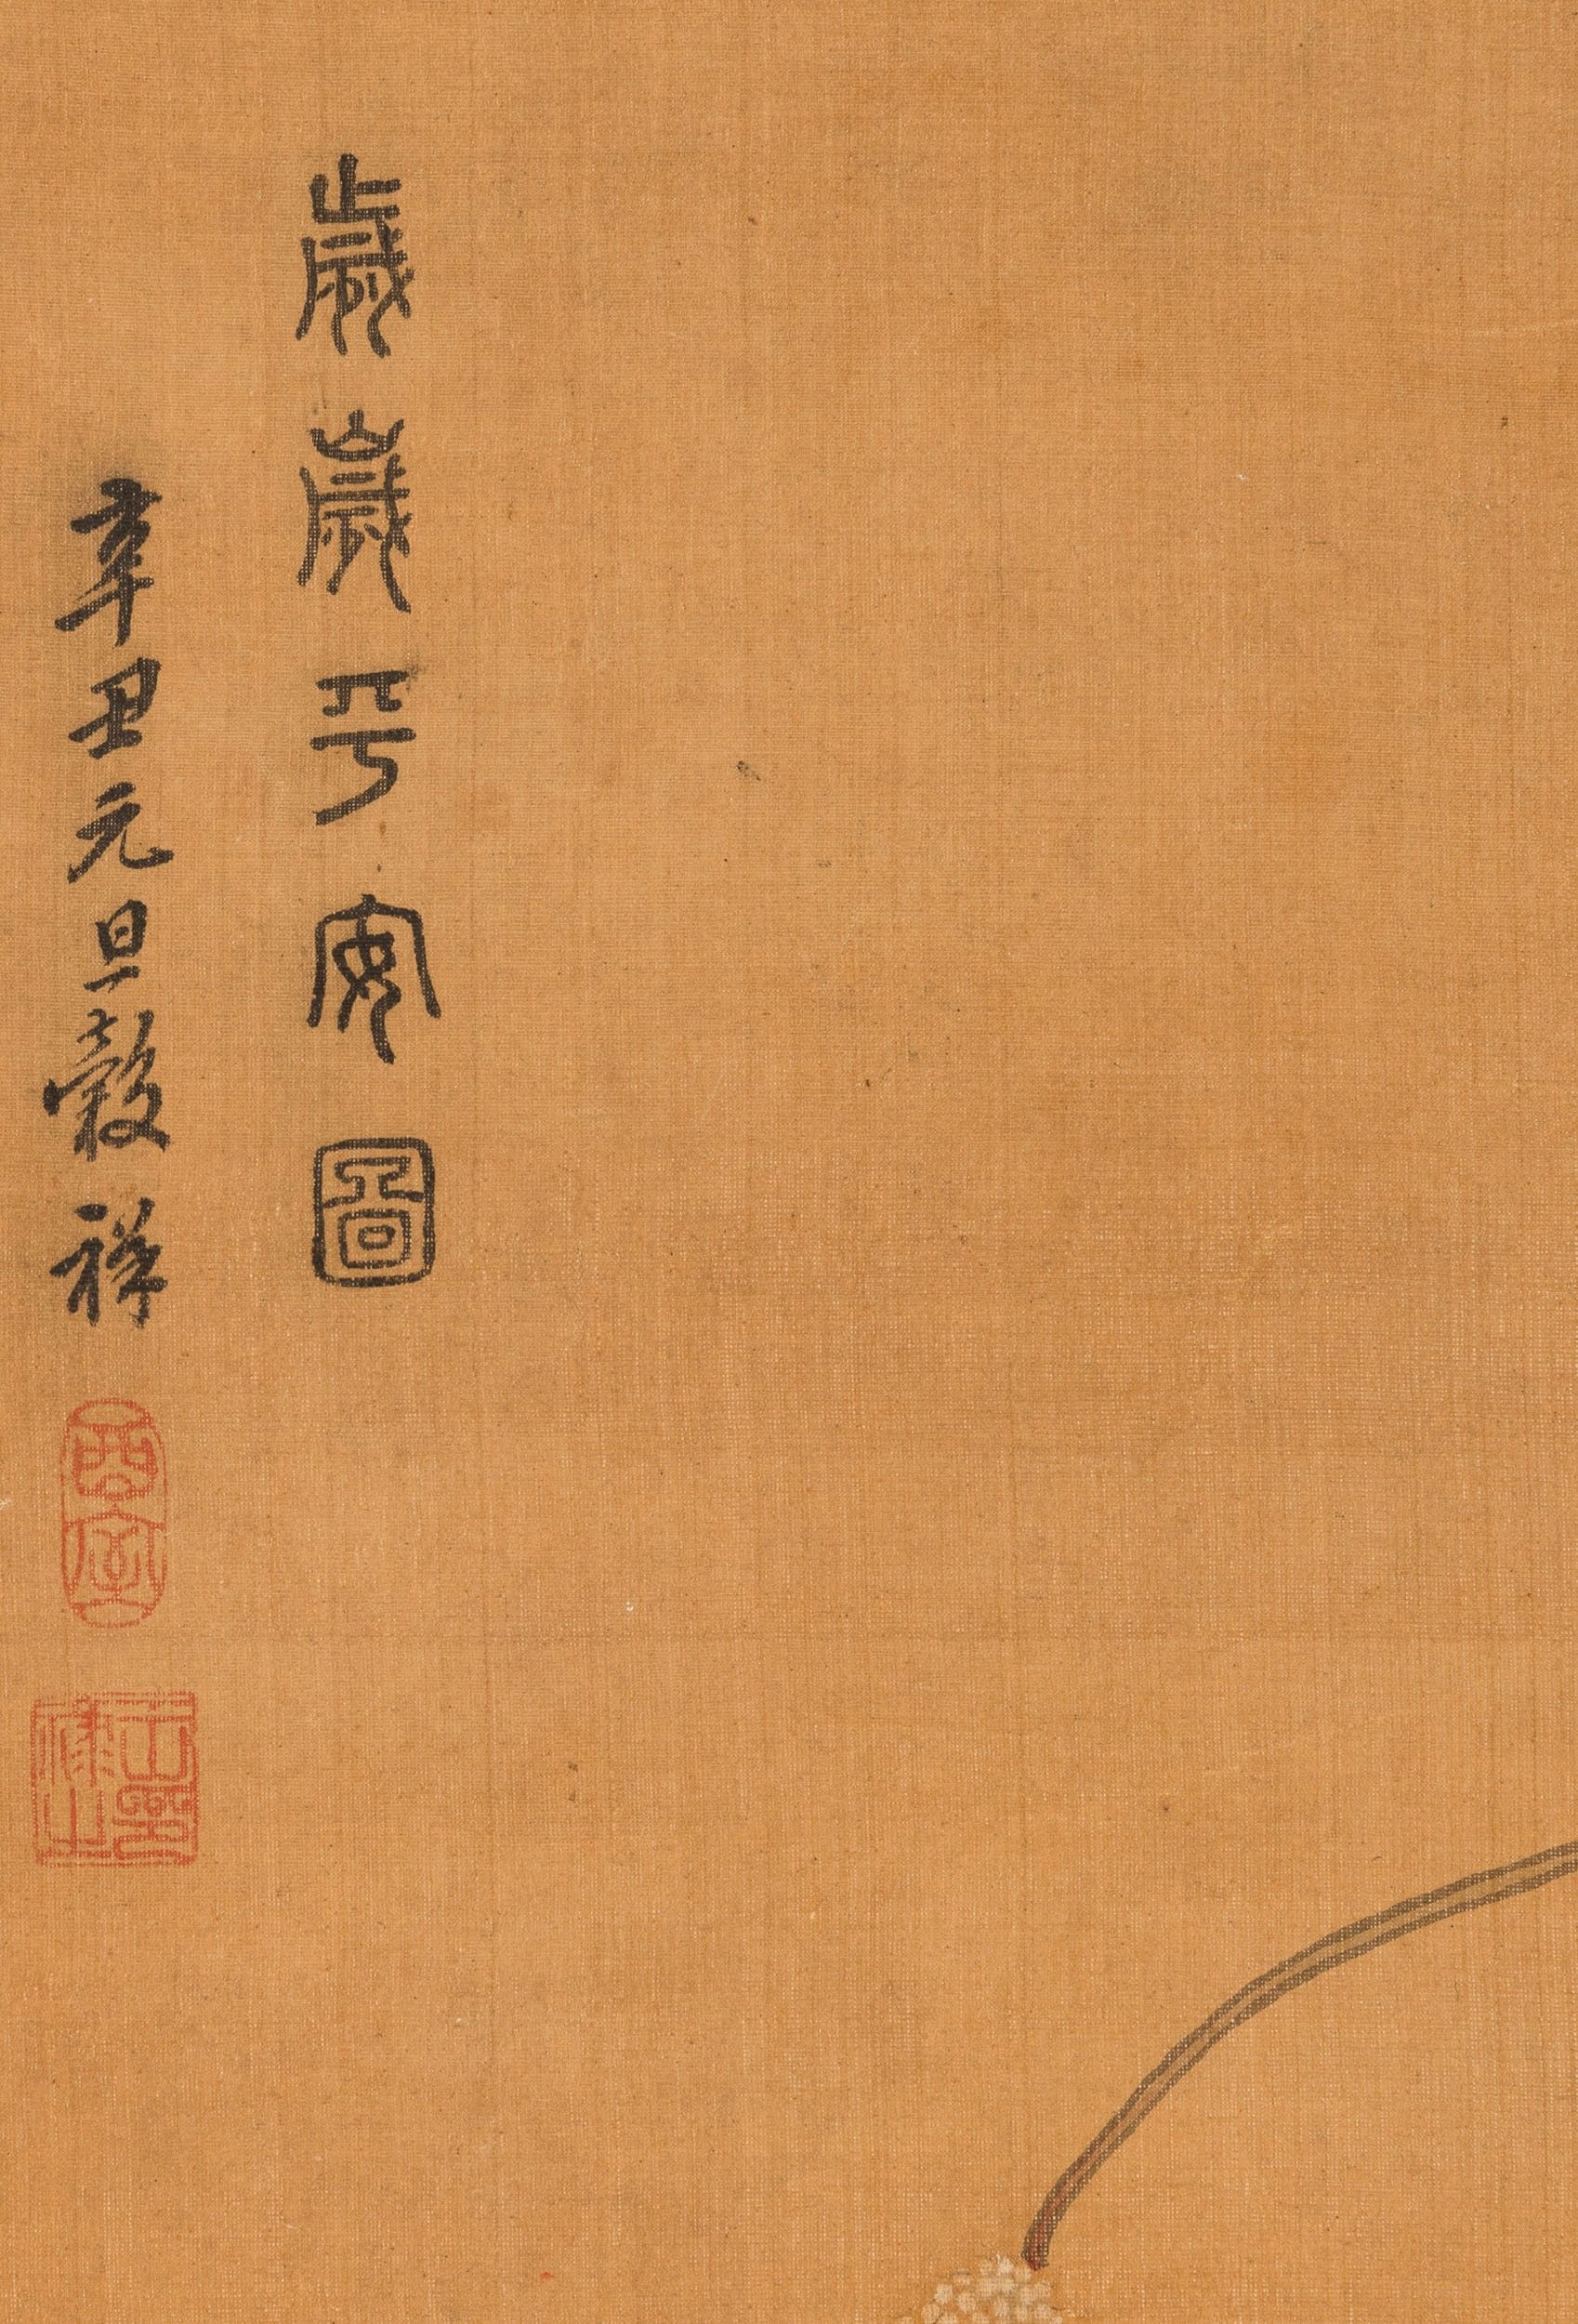 歲歲平安圖
辛丑元旦穀祥
酉室